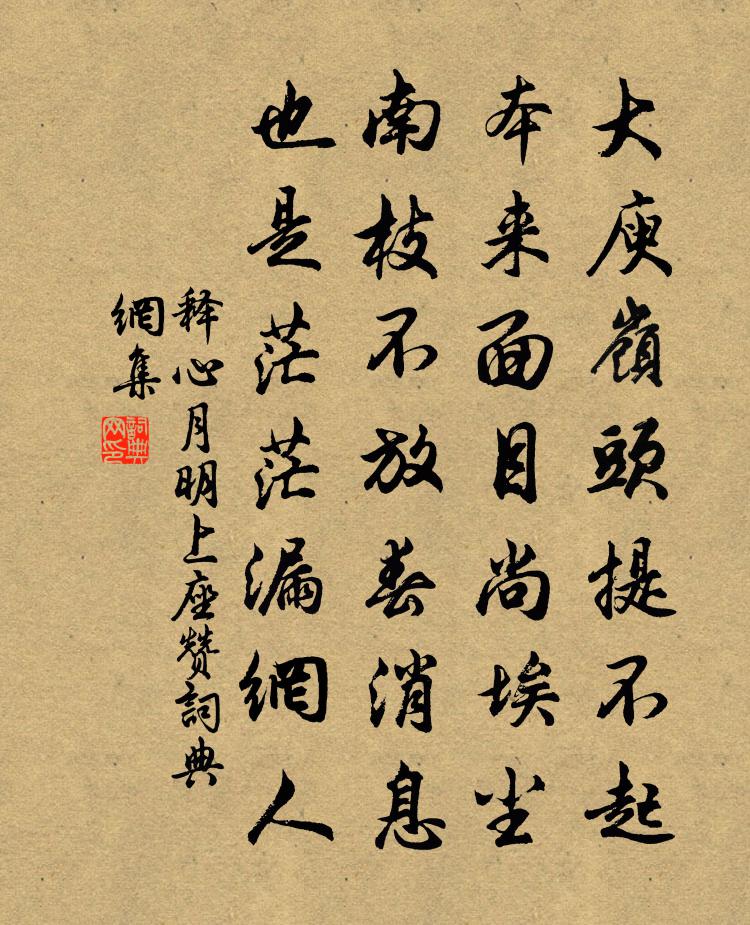 大庾嶺頭提不起
本来面目尚埃尘
南枝不放春消息
也是茫茫漏網人
释心月明上座赞詞典
網集
詞典
网印